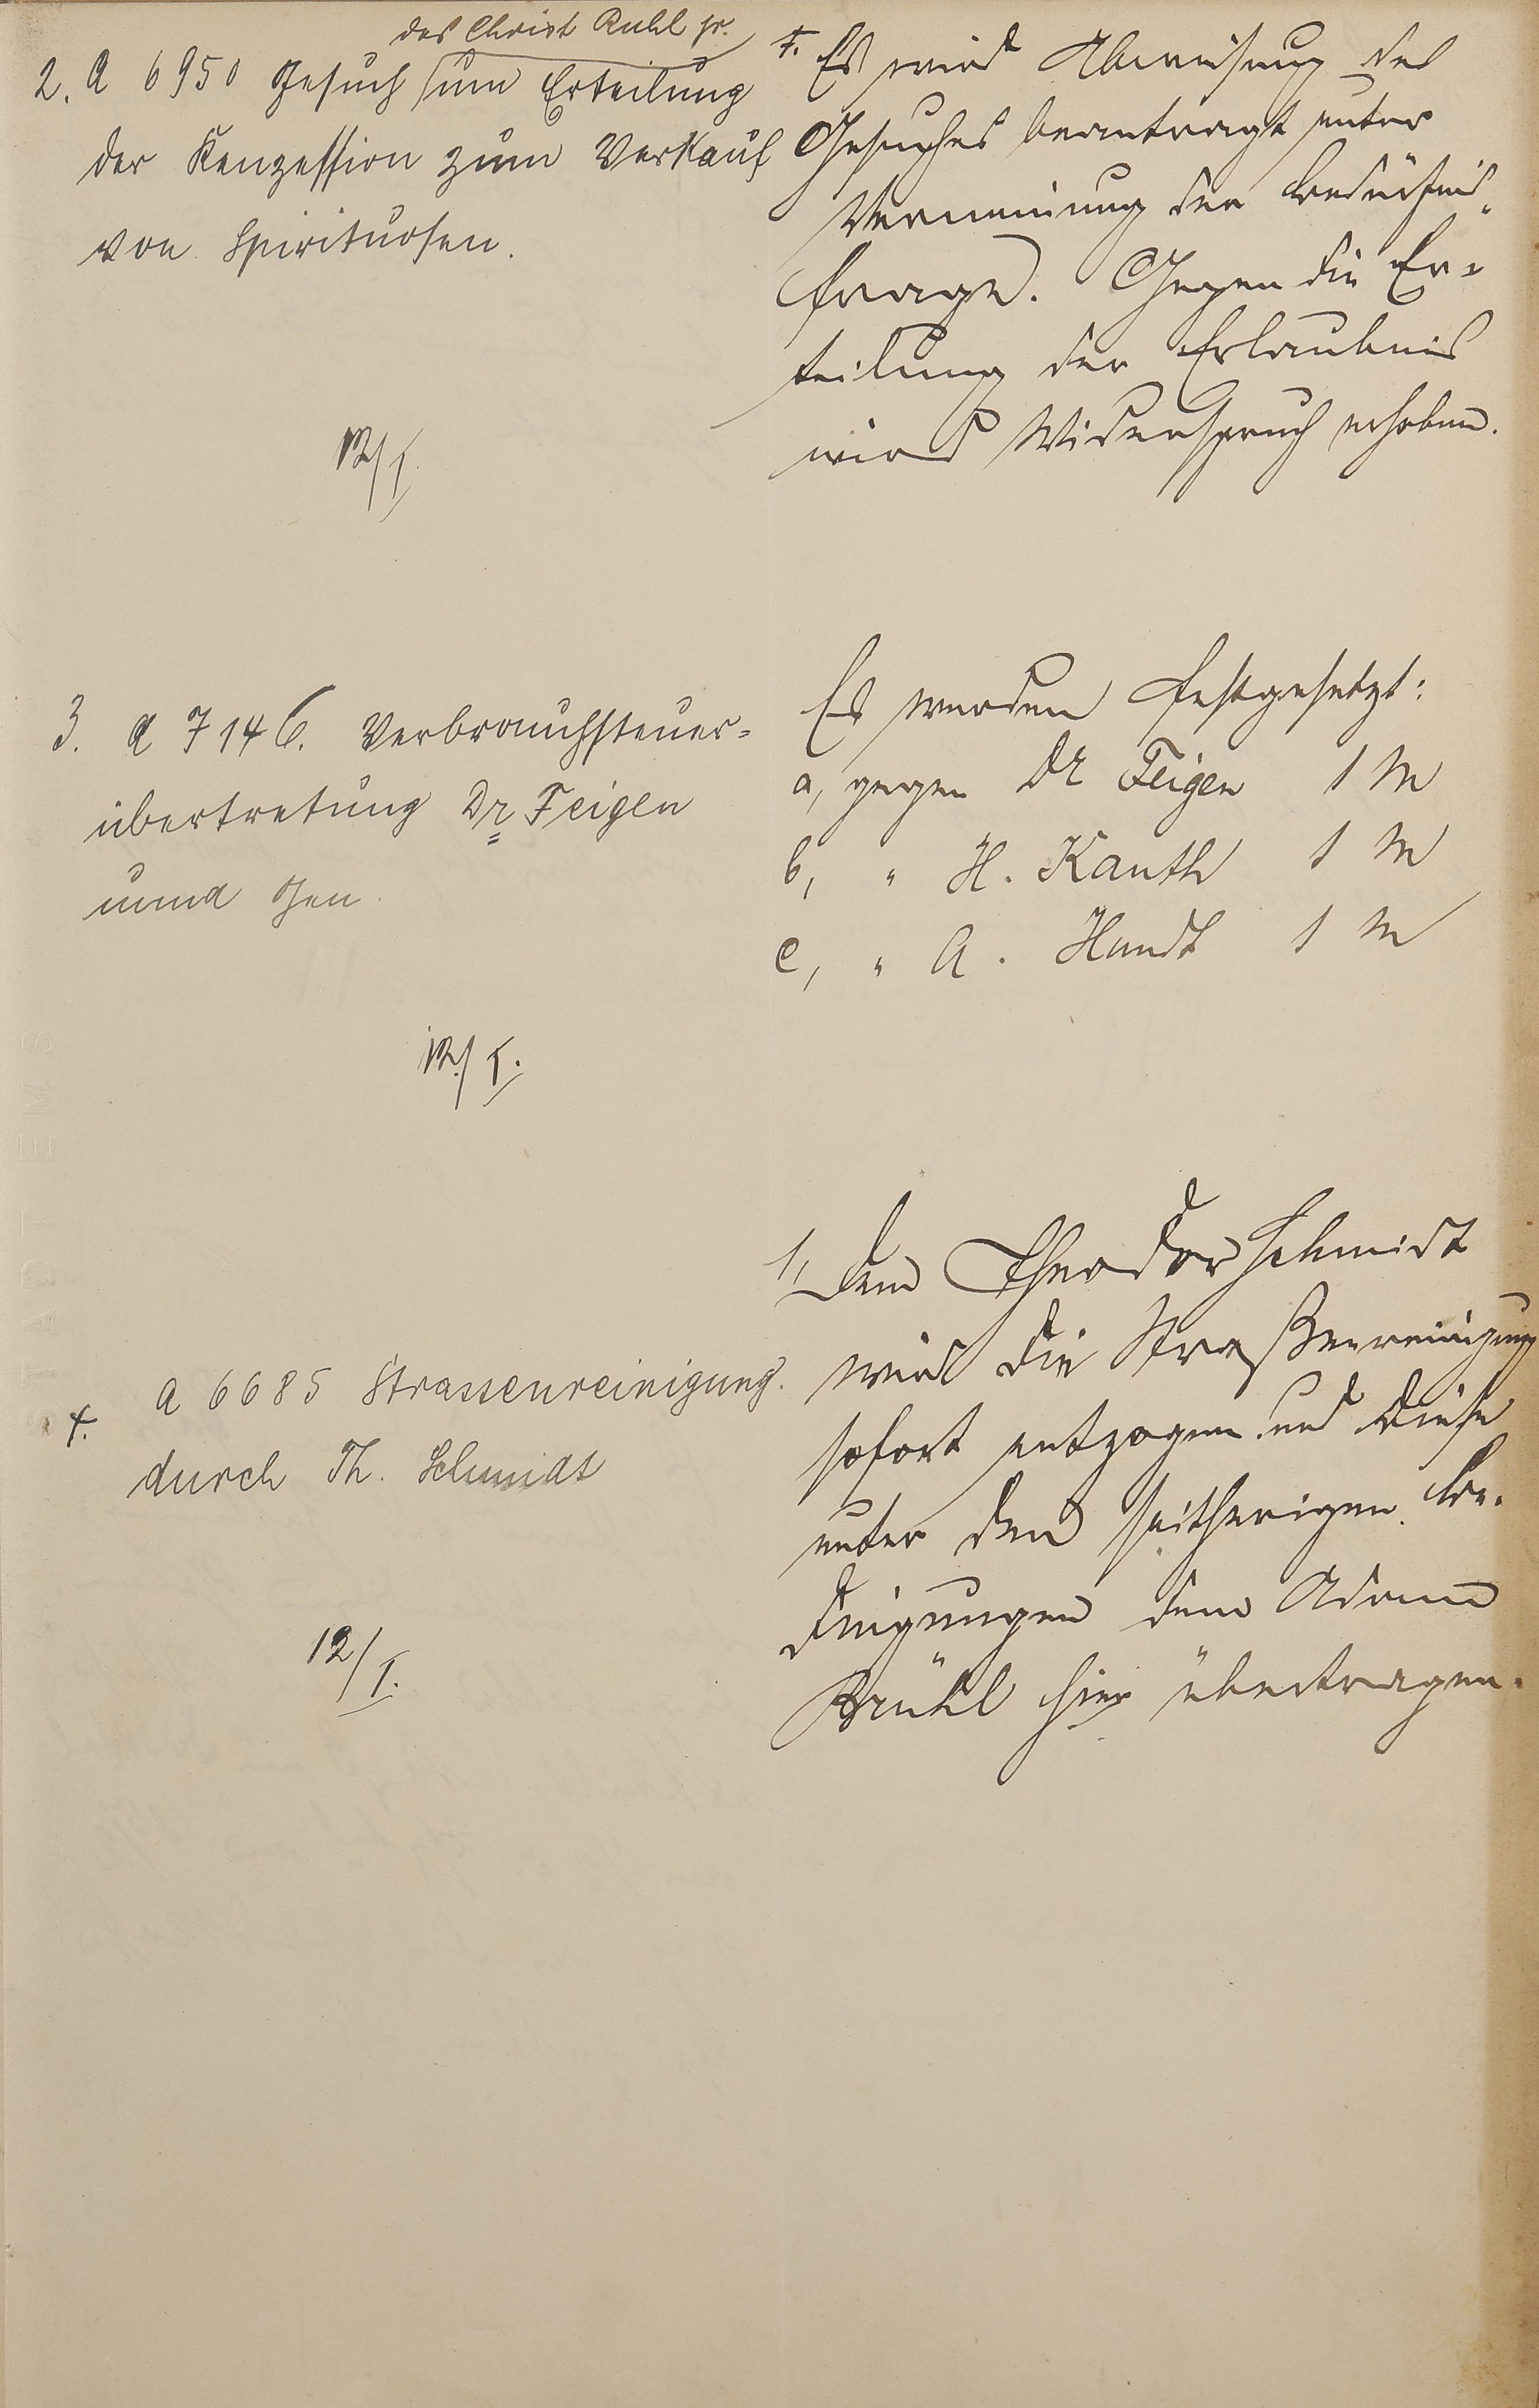 des Christ Ruhl jr.
2. A 6950 Gesuch um Erteilung
der Konzession zum Verkauf
von Spirituosen.
12/I.
Es wird Abweisung des
Gesuches beantragt unter
Verneinung der Bedürfnis-
frage. Gegen die Er-
teilung der Erlaubnis
wird Widerspruch erhoben.
3. A 7146. Verbrauchsteuer-
übertretung Dr. Feigen
und Gen.
12./I.
Es werden festgesetzt:
a, gegen Dr Feigen 1 M
b, " H. Kauth 1 M
c, " A. Handt 1 M
4. A 6685 Strassenreinigung.
durch Th. Schmidt
12/I.
1, Dem Theodor Schmidt
wird die Straßenreinigung
sofort entzogen und diese
unter den seitherigen Be-
dingungen dem Adam
Brühl hier übertragen.
STADT EMS